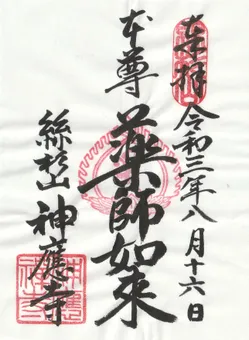 奉拝 令和三年八月十六日
本尊 薬師如来
絲杉山 神應寺